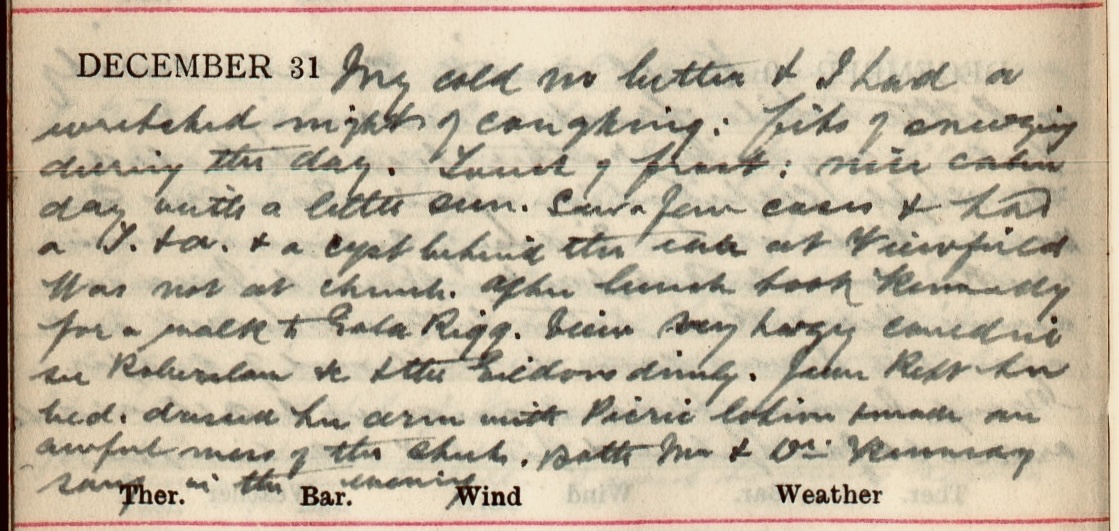 DECEMBER 31 My cold no better & I had a
wretched night of coughing: fits of sneezing
during the day. Touch of frost: nice calm
day with a little sun. Saw a few cases & had
a T. & a. & a cyst behind the ear at Viewfield
Was not at church. After lunch took Kennedy
for a walk to Gala Rigg. View very hazy
see & the Eildons dimly. Jean kept her
bed. dressed her arm with Picric lotion & made an
awful mess of the sheets. Both Mr & Dr
sang in the evening
Ther. Bar. Wind Weather